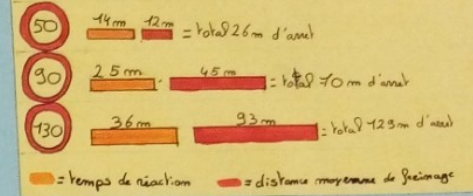 50 14m 12m = total 26m d'arret
90 25m 45m = total 70m d'arret
130 36m 93m = total 129m d'arret
= temps de réaction = distance moyenne de freinage